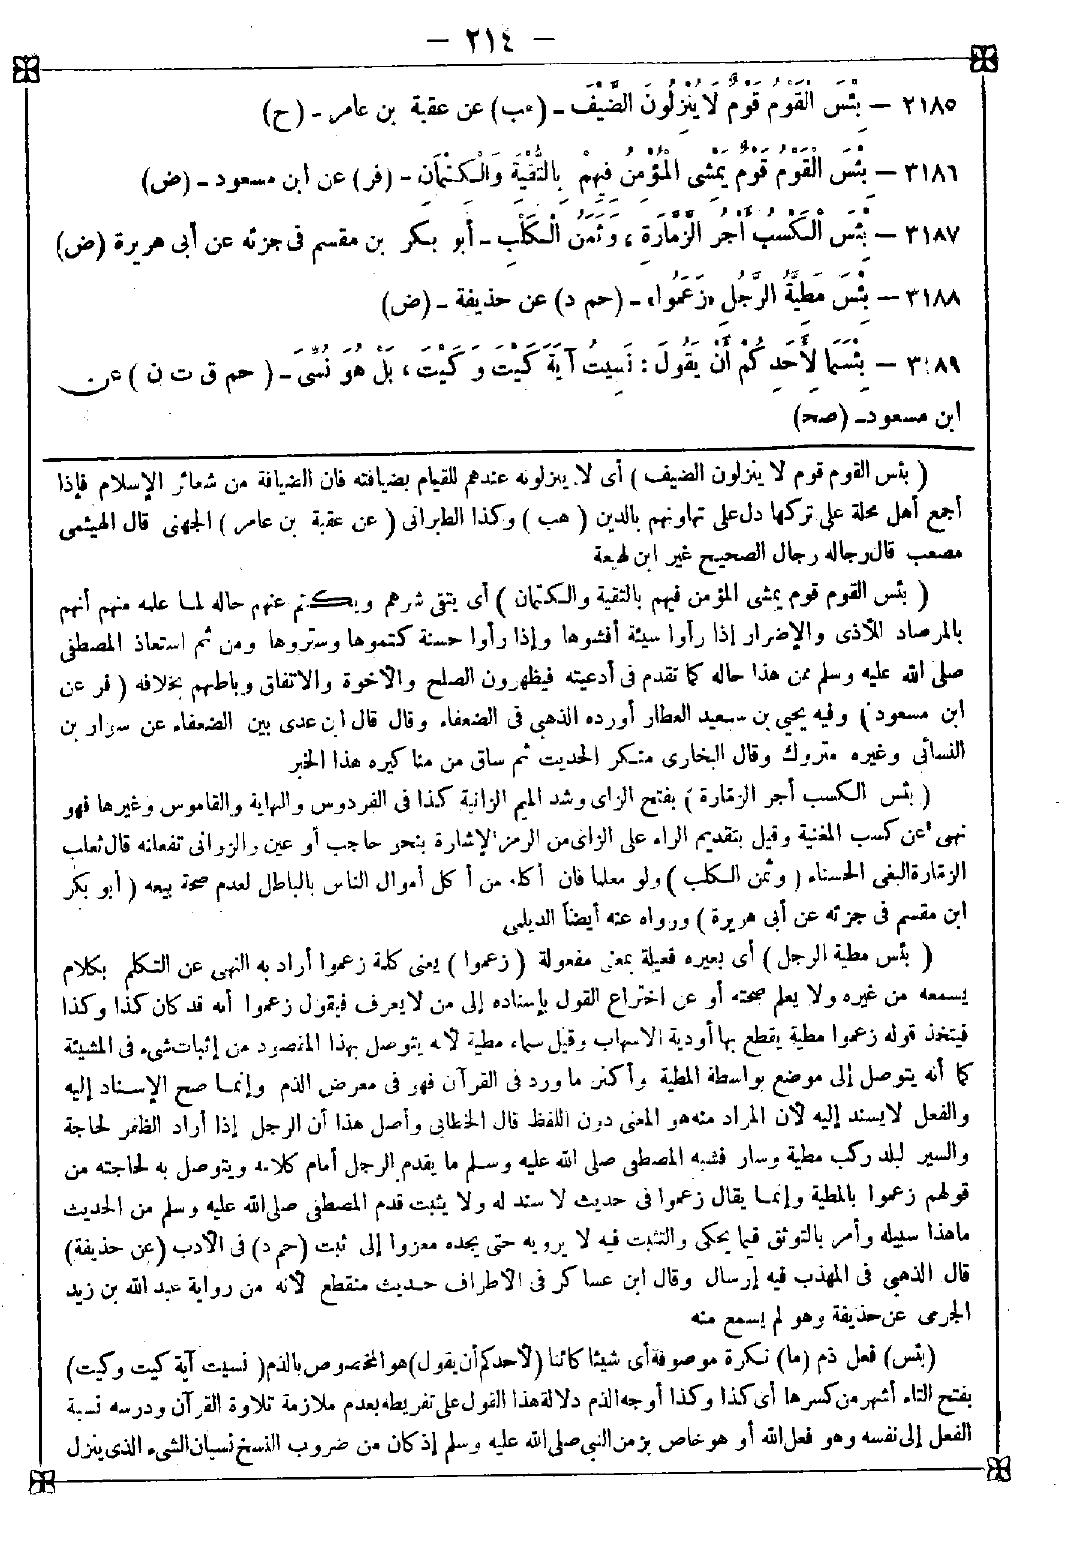 — ٢١٤ —
٢١٨٥ — بِئْسَ الْقَوْمُ قَوْمٌ لَا يُنْزِلُونَ الضَّيْفَ - (هب) عن عقبة بن عامر - (ح)
٣١٨٦ — بِئْسَ الْقَوْمُ قَوْمٌ يَمْشِى الْمُؤْمِنُ فِيهِمْ بِالتَّقِيَّةِ وَالْكِتْمَانِ - (فر) عن ابن مسعود - (ض)
٣١٨٧ — بِئْسَ الْكَسْبُ أَجْرُ الزَّمَّارَةِ ، وَثَمَنُ الْكَلْبِ - أبو بكر بن مقسم فى جزئه عن أبى هريرة (ض)
٣١٨٨ — بِئْسَ مَطِيَّةُ الرَّجُلِ «زَعَمُوا» - (حم د) عن حذيفة - (ض)
٣١٨٩ — بِئْسَمَا لِأَحَدِكُمْ أَنْ يَقُولَ : نَسِيتُ آيَةَ كَيْتَ وَكَيْتَ ، بَلْ هُوَ نُسِّىَ - ( حم ق ت ن ) عن
ابن مسعود - (صح)
( بئس القوم قوم لا ينزلون الضيف ) أى لا ينزلونه عندهم للقيام بضيافته فان الضيافة من شعائر الإسلام فإذا
أجمع أهل محلة على تركها دل على تهاونهم بالدين ( هب ) وكذا الطبرانى ( عن عقبة بن عامر ) الجهنى قال الهيثمى
مصعب قال رجاله رجال الصحيح غير ابن لهيعة
( بئس القوم قوم يمشى المؤمن فيهم بالتقية والكتمان ) أى يتقى شرهم ويكتم عنهم حاله لما علمه منهم أنهم
بالمرصاد للأذى والإضرار إذا رأوا سيئة أفشوها وإذا رأوا حسنة كتموها وستروها ومن ثم استعاذ المصطفى
صلى الله عليه وسلم ممن هذا حاله كما تقدم فى أدعيته فيظهرون الصلح والأخوة والاتفاق وباطنهم بخلافه ( فر عن
ابن مسعود ) وفيه يحيى بن سعيد العطار أورده الذهبى فى الضعفاء وقال قال ابن عدى بين الضعفاء عن سوار بن
النسائى وغيره متروك وقال البخارى منكر الحديث ثم ساق من مناكيره هذا الخبر
( بئس الكسب أجر الزمارة ) بفتح الزاى وشد الميم الزانية كذا فى الفردوس والنهاية والقاموس وغيرها فهو
نهى عن كسب المغنية وقيل بتقديم الراء على الزاى من الرمز الإشارة بنحو حاجب أو عين والزوانى تفعلنه قال ثعلب
الزمارة البغى الحسناء ( وثمن الكلب ) ولو معلما فان أكله من أكل أموال الناس بالباطل لعدم صحة بيعه ( أبو بكر
ابن مقسم فى جزئه عن أبى هريرة ) ورواه عنه أيضاً الديلمى
( بئس مطية الرجل ) أى بعيره فعيلة بمعنى مفعولة ( زعموا ) يعنى كلمة زعموا أراد به النهى عن التكلم بكلام
يسمعه من غيره ولا يعلم صحته أو عن اختراع القول بإسناده إلى من لا يعرف فيقول زعموا أنه قد كان كذا وكذا
فيتخذ قوله زعموا مطية يقطع بها أودية الاسهاب وقيل سماه مطية لأنه يتوصل بهذا المقصود من إثبات شىء فى المشيئة
كما أنه يتوصل إلى موضع بواسطة المطية وأكثر ما ورد فى القرآن فهو فى معرض الذم وإنما صح الإسناد إليه
والفعل لا يسند إليه لأن المراد منه هو المعنى دون اللفظ قال الخطابى وأصل هذا أن الرجل إذا أراد الظفر لحاجة
والسير لبلد ركب مطية وسار فشبه المصطفى صلى الله عليه وسلم ما يقدم الرجل أمام كلامه ويتوصل به لحاجته من
قولهم زعموا بالمطية وإنما يقال زعموا فى حديث لا سند له ولا يثبت فذم المصطفى صلى الله عليه وسلم من الحديث
ما هذا سبيله وأمر بالتوثق فيما يحكى والتثبت فيه لا يرويه حتى يجده معزوا إلى ثبت (حم د) فى الأدب (عن حذيفة)
قال الذهبى فى المهذب فيه إرسال وقال ابن عساكر فى الأطراف حديث منقطع لأنه من رواية عبد الله بن زيد
الجرمى عن حذيفة وهو لم يسمع منه
(بئس) فعل ذم (ما) نكرة موصوفة أى شيئا كائنا (لأحدكم أن يقول) هو المخصوص بالذم ( نسيت آية كيت وكيت)
بفتح التاء أشهر من كسرها أى كذا وكذا أوجه الذم دلالة هذا القول على تفريطه بعدم ملازمة تلاوة القرآن ودرسه نسبة
الفعل إلى نفسه وهو فعل الله أو هو خاص بزمن النبى صلى الله عليه وسلم إذ كان من ضروب النسخ نسيان الشىء الذى ينزل